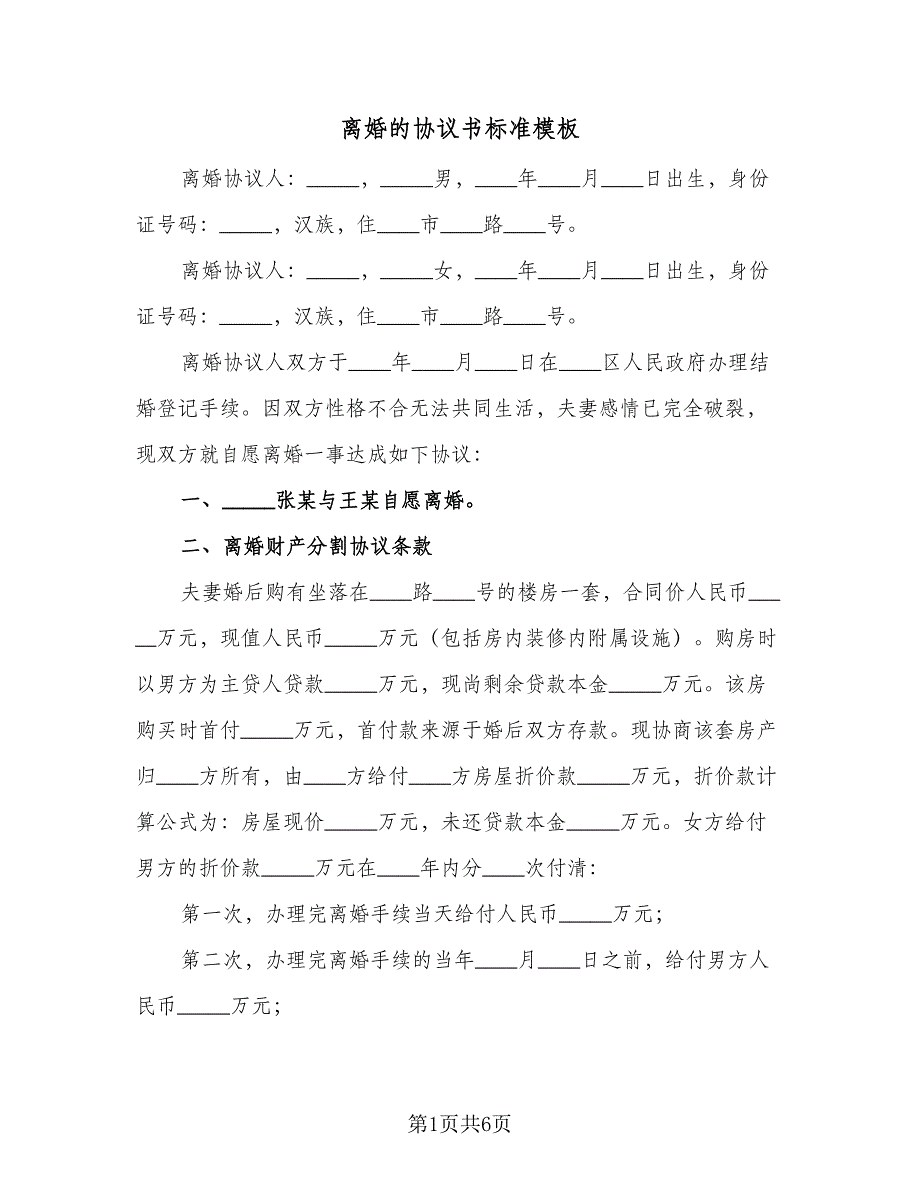 离婚的协议书标准模板
离婚协议人：_____，_____男，____年____月____日出生，身份
证号码：_____，汉族，住____市____路____号。
离婚协议人：_____，_____女，____年____月____日出生，身份
证号码：_____，汉族，住____市____路____号。
离婚协议人双方于____年____月____日在____区人民政府办理结
婚登记手续。因双方性格不合无法共同生活，夫妻感情已完全破裂，
现双方就自愿离婚一事达成如下协议：
一、_____张某与王某自愿离婚。
二、离婚财产分割协议条款
夫妻婚后购有坐落在____路____号的楼房一套，合同价人民币___
__万元，现值人民币_____万元（包括房内装修内附属设施）。购房时
以男方为主贷人贷款_____万元，现尚剩余贷款本金_____万元。该房
购买时首付_____万元，首付款来源于婚后双方存款。现协商该套房产
归____方所有，由____方给付____方房屋折价款_____万元，折价款计
算公式为：房屋现价_____万元，未还贷款本金_____万元。女方给付
男方的折价款_____万元在____年内分____次付清：
第一次，办理完离婚手续当天给付人民币_____万元；
第二次，办理完离婚手续的当年____月____日之前，给付男方人
民币_____万元；
第1页共6页